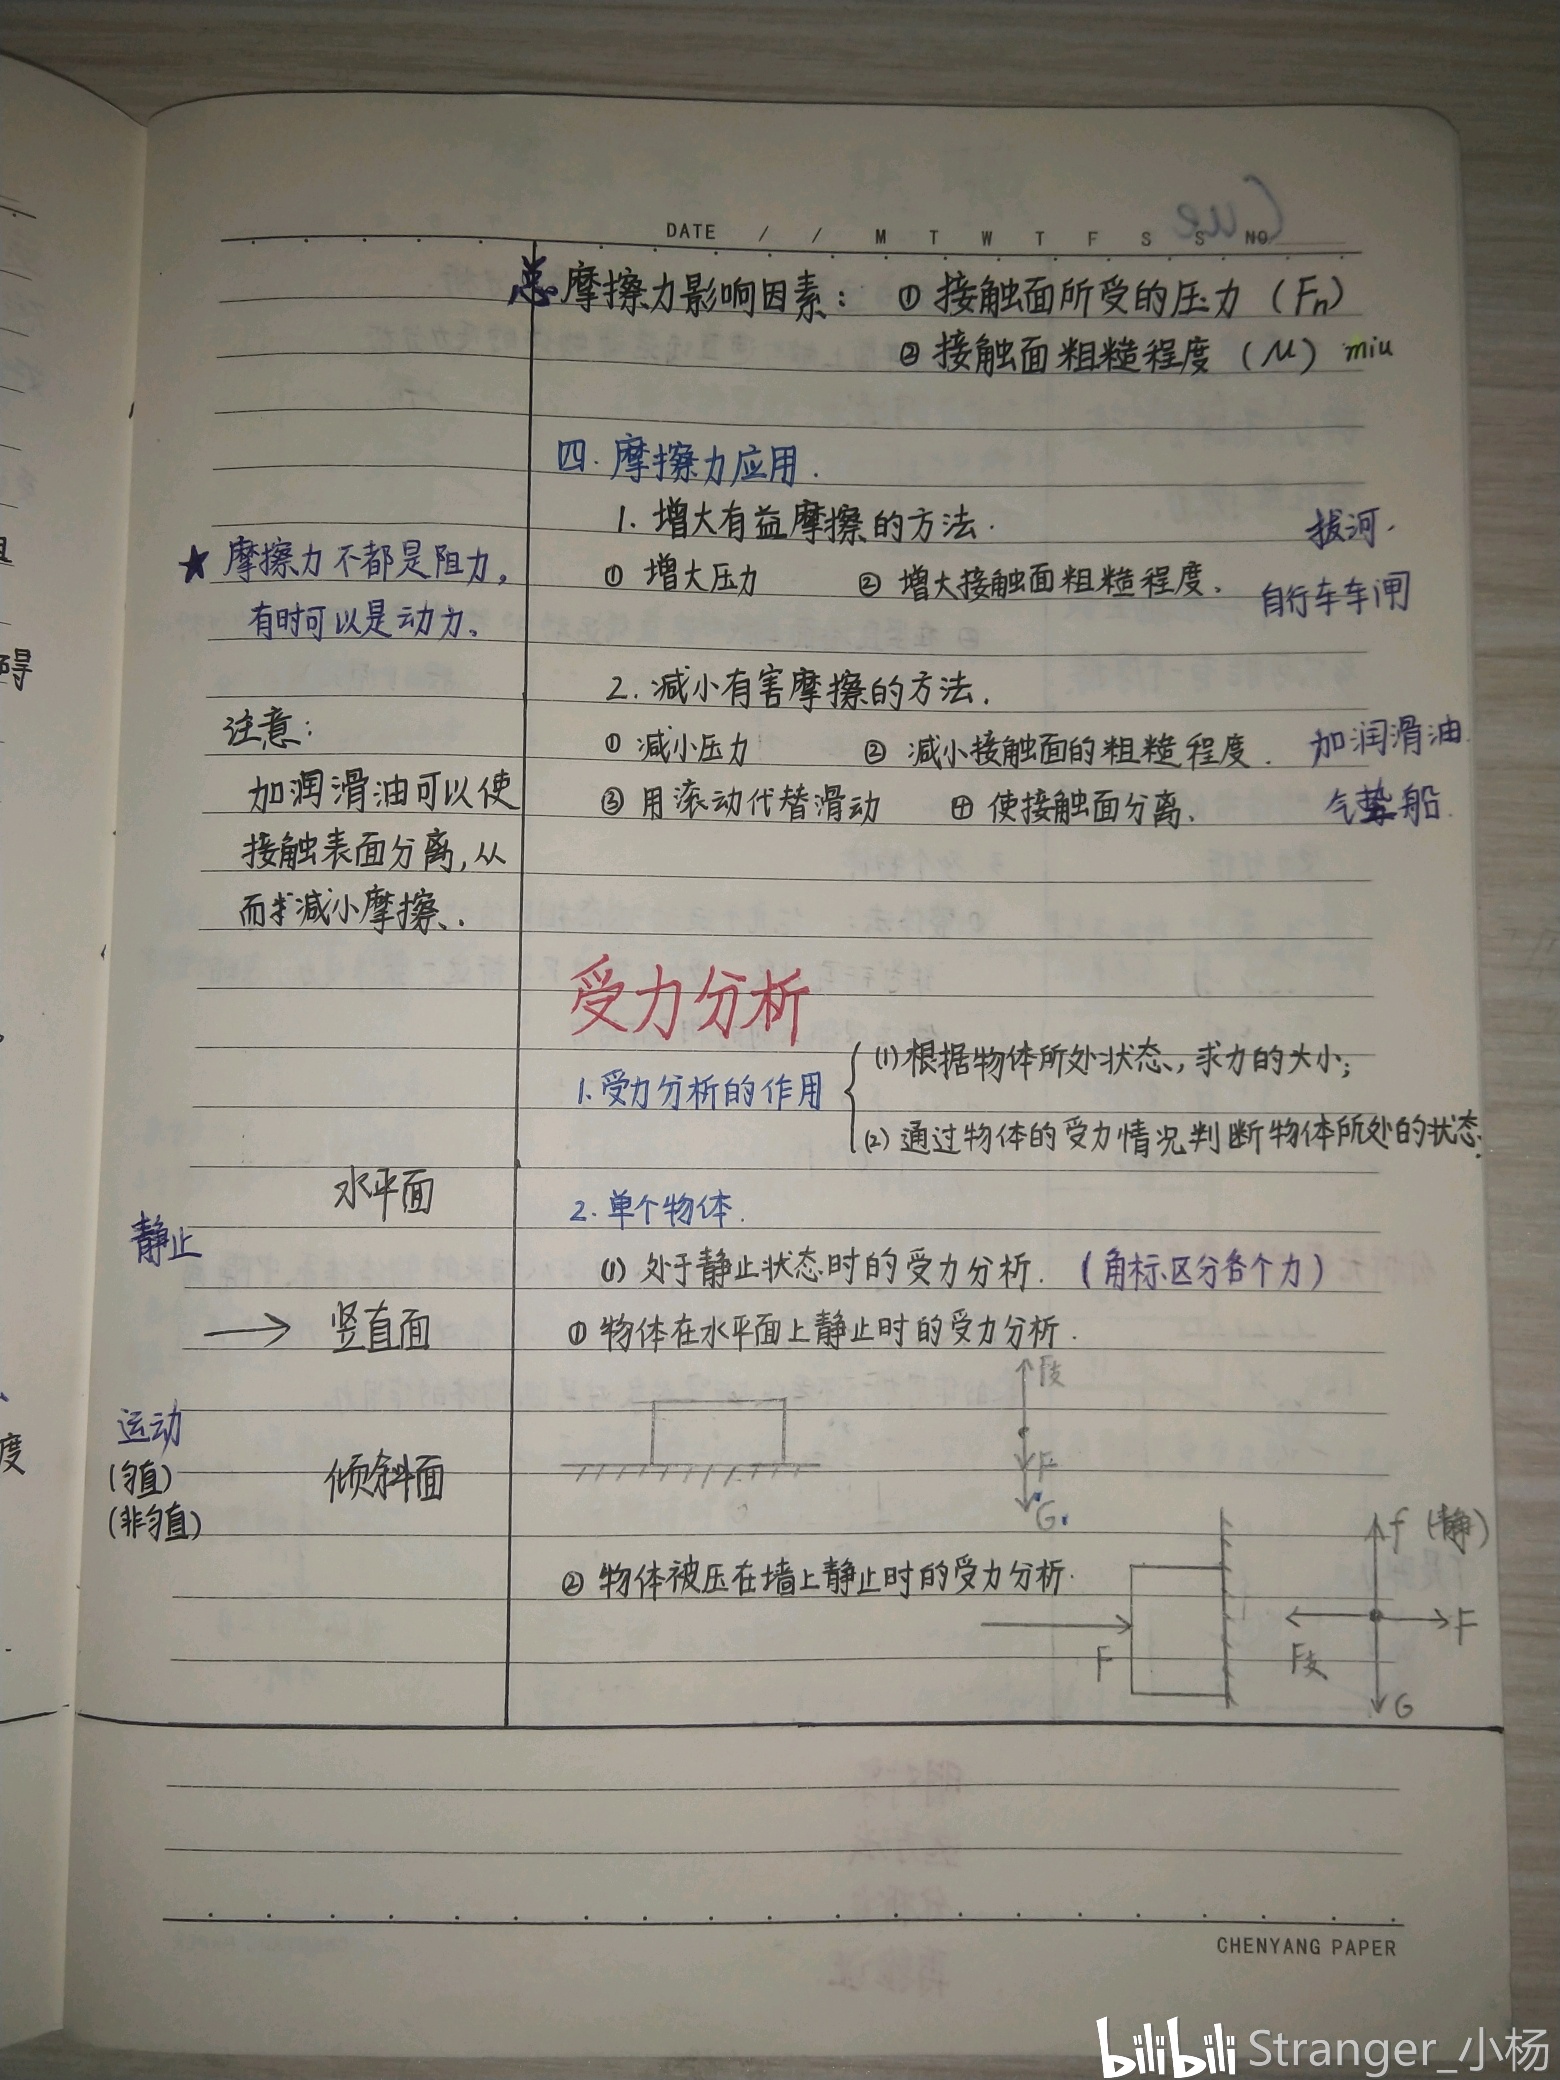 DATE / / M T W T F S S NO
总 摩擦力影响因素: ① 接触面所受的压力 (Fn)
② 接触面粗糙程度 (μ) miu
四. 摩擦力应用.
1. 增大有益摩擦的方法.
拔河.
① 增大压力 ② 增大接触面粗糙程度.
自行车车闸
★ 摩擦力不都是阻力,
有时可以是动力.
2. 减小有害摩擦的方法.
① 减小压力 ② 减小接触面的粗糙程度. 加润滑油.
③ 用滚动代替滑动 ④ 使接触面分离. 气垫船.
注意:
加润滑油可以使
接触表面分离,从
而减小摩擦.
受力分析
1.受力分析的作用
(1)根据物体所处状态,求力的大小;
(2)通过物体的受力情况判断物体所处的状态.
水平面
静止
竖直面
运动
(匀直)
(非匀直)
倾斜面
2. 单个物体.
(1) 处于静止状态时的受力分析. (角标区分各个力)
① 物体在水平面上静止时的受力分析.
F支
F
G
② 物体被压在墙上静止时的受力分析.
F
f (静)
F支
F
G
CHENYANG PAPER
bilibili Stranger_小杨